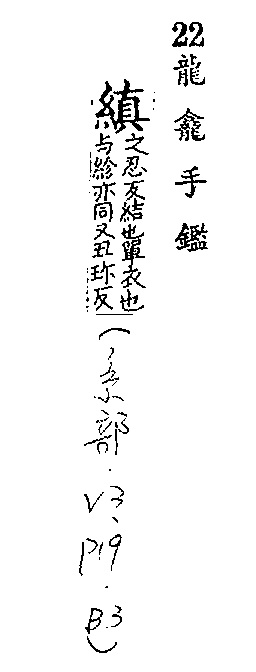 22龍龕手鑑
縝之忍反結也單衣也
与紾亦同又丑珎反
(糸部.V3、P19.B3)